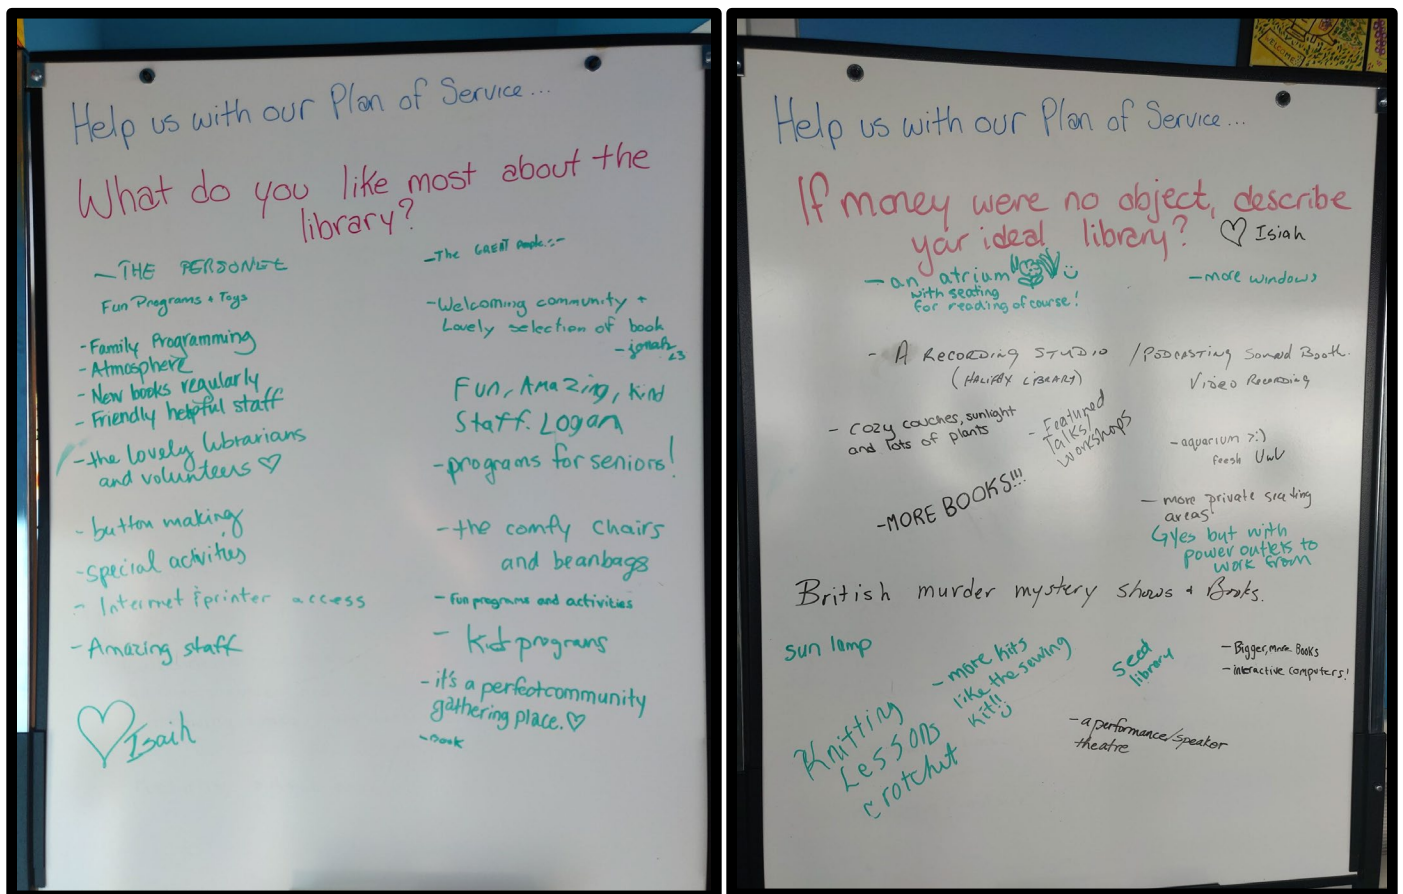 Help us with our Plan of Service...
What do you like most about the
library?
- THE PERSONEL
Fun Programs + Toys
- Family Programming
- Atmosphere
- New books regularly
- Friendly helpful staff
- the lovely librarians
and volunteers ♡
- button making
- special activities
- Internet printer access
- Amazing staff
♡ Isaih
- The GREAT People :-
- Welcoming community +
Lovely selection of book
- jonah <3
Fun, Amazing, kind
Staff. Logan
- programs for seniors!
- the comfy chairs
and beanbags
- Fun programs and activities
- Kid programs
- it's a perfect community
gathering place. ♡
- Book
Help us with our Plan of Service...
If money were no object, describe
your ideal library? ♡ Isiah
- an atrium
with seating
for reading of course!
- more windows
- A RECORDING STUDIO / PODCASTING Sound Booth.
(HALIFAX LIBRARY) Video Recording
- cozy couches, sunlight
and lots of plants
- Featured
Talks/
Workshops
- aquarium >:)
feesh UwU
- MORE BOOKS!!!
- more private seating
areas
Yes but with
power outlets to
work from
British murder mystery shows + Books.
sun lamp
- more kits
like the sewing
kit!!
seed
library
- Bigger, more Books
- interactive computers!
Knitting
Lessons
crotchut
- a performance/speaker
theatre
WELCOME!